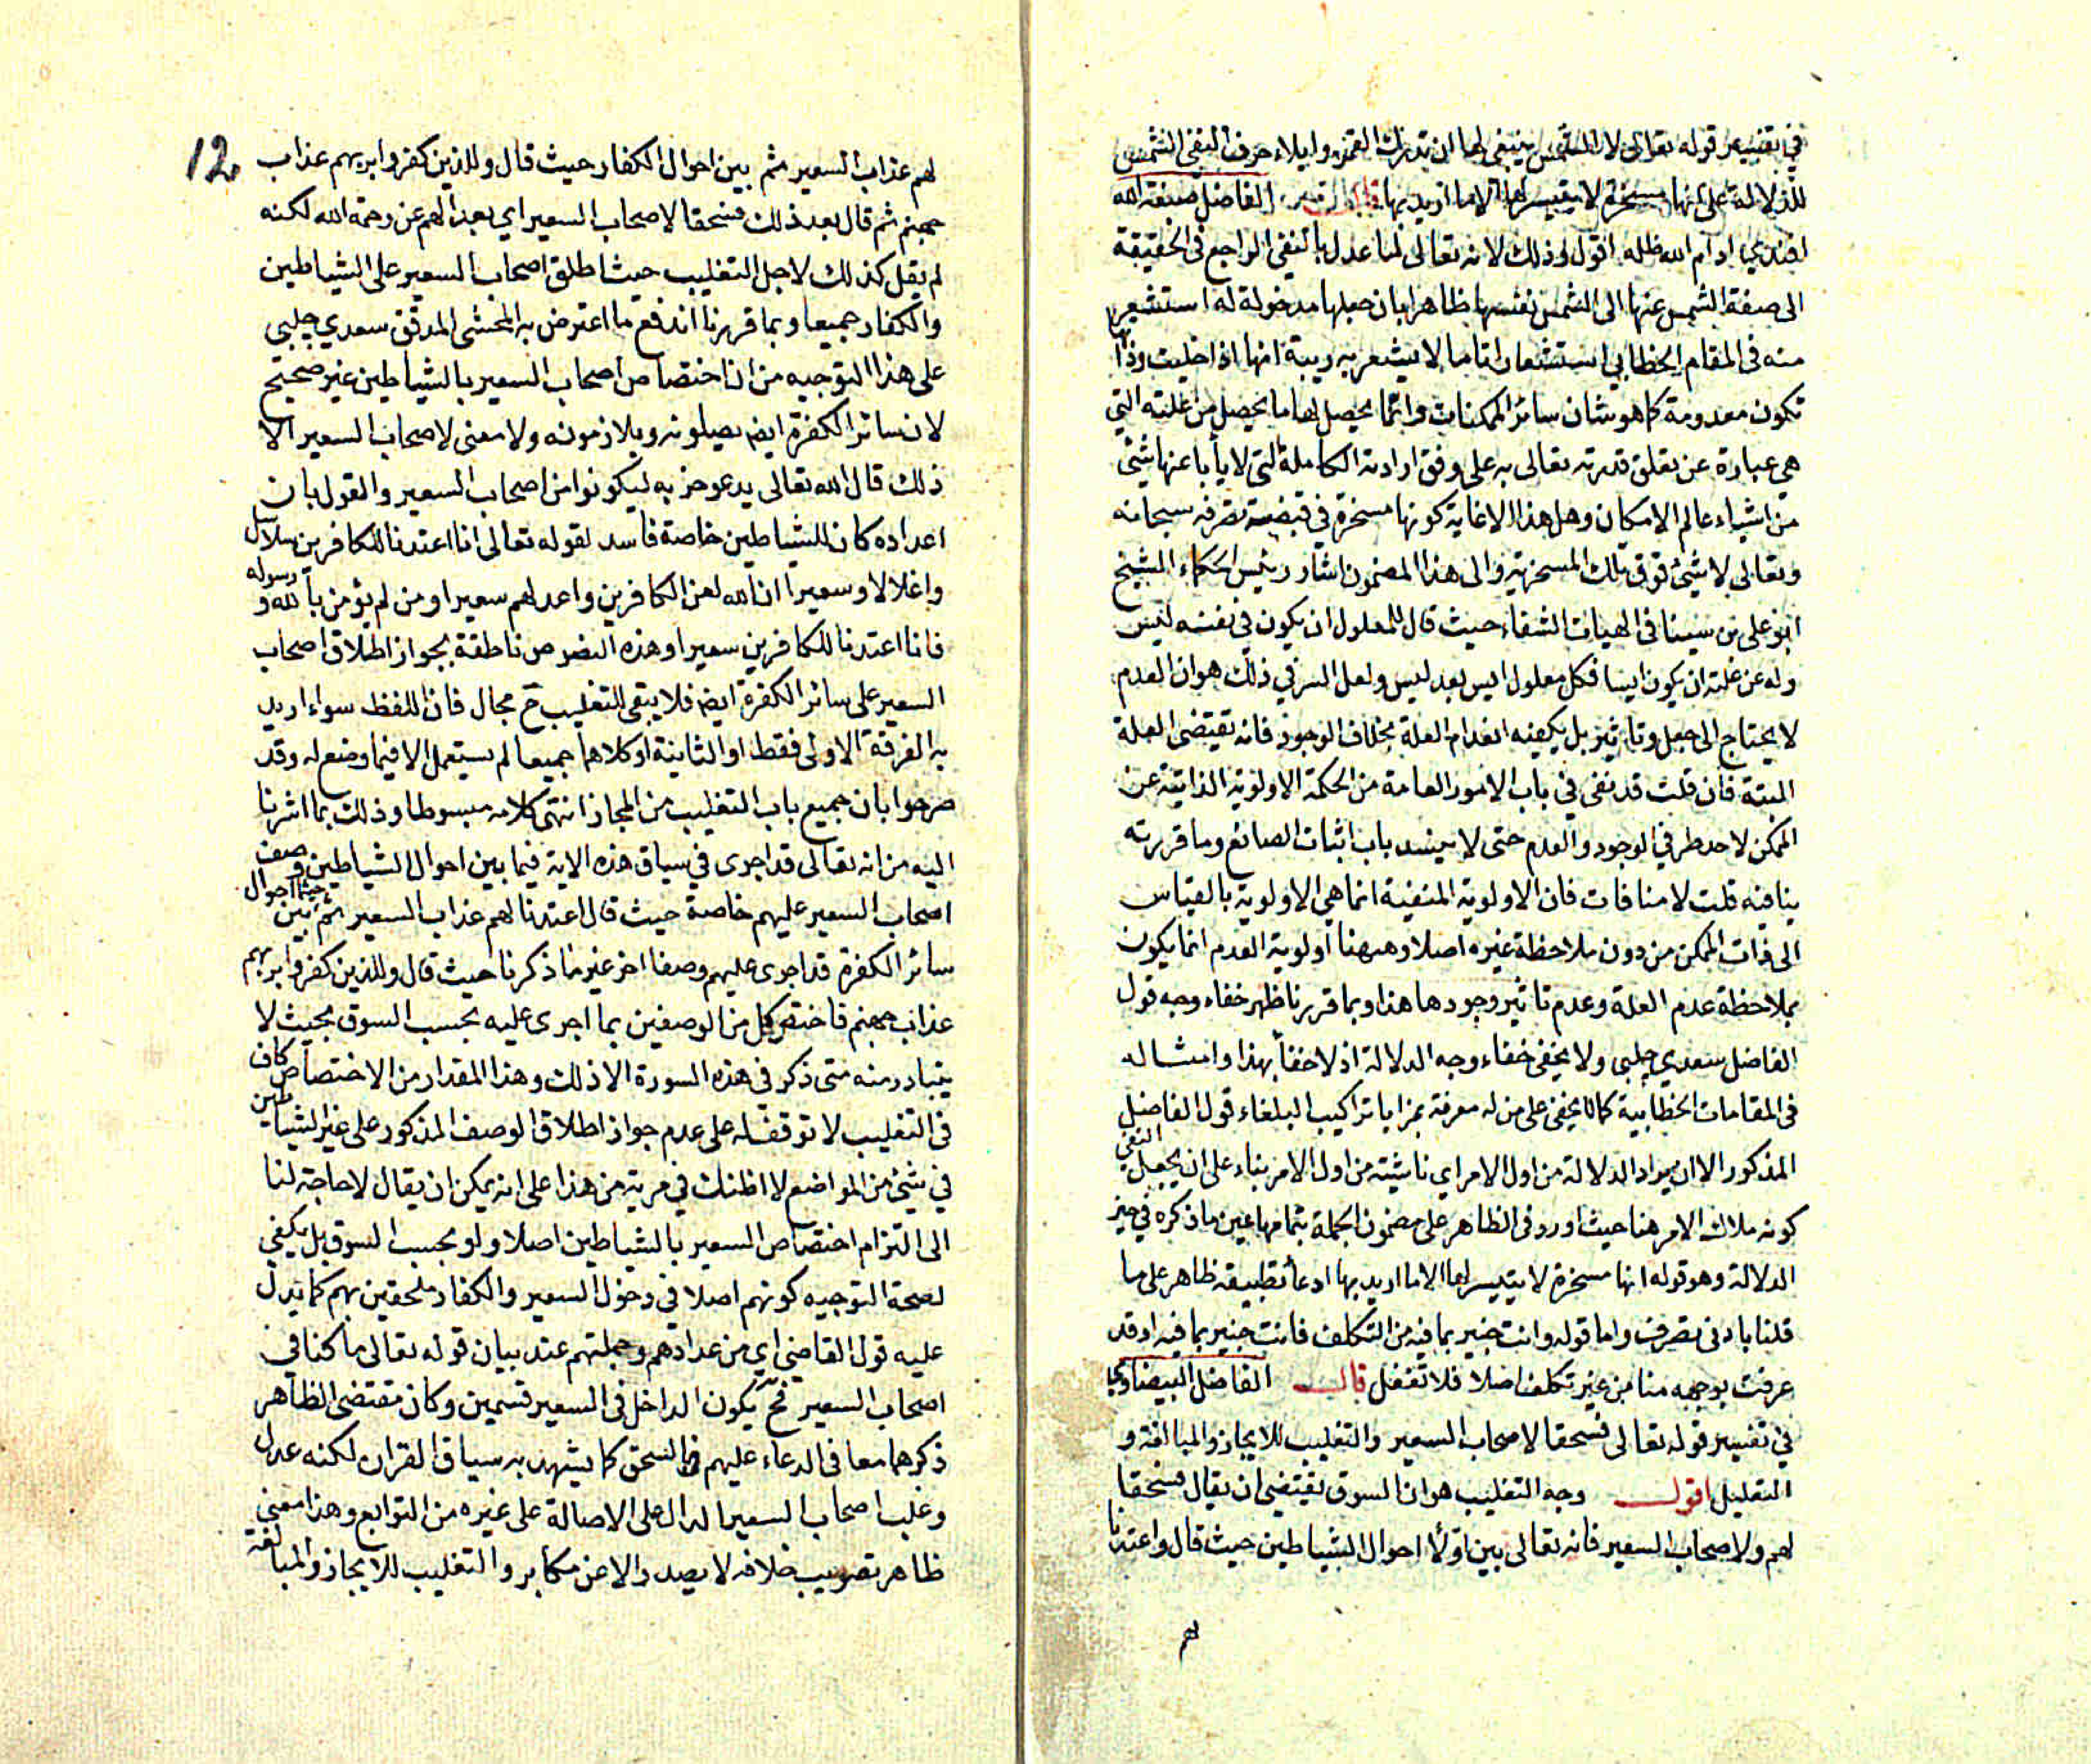 في تفسير قوله تعالى لا الشمس ينبغي لها ان تدرك القمر وايلاء حرف النفي الشمس
للدلالة على انها مسخرة لا يتيسر لها الا ما اريد بها قال الفاضل صبغة الله
افندي ادام الله ظله اقول وذلك لانه تعالى لما عدل بالنفي الراجع في الحقيقة
الى صفة الشمس عنها الى الشمس نفسها ظاهرا بان جعلها مدخولة له استشعر
منه في المقام الخطابي استشعارا تاما لا يشعر به ريبة انها اذا خليت وذاتها
تكون معدومة كما هو شان سائر الممكنات وانما يحصل لها ما يحصل من علته التي
هي عبارة عن تعلق قدرته تعالى به على وفق ارادته الكاملة التي لا يأبا عنها شئ
من اشياء عالم الامكان وهل هذا الا غاية كونها مسخرة في قبضة تصرفه سبحانه
وتعالى لا شئ فوق تلك المسخرية والى هذا المضمون اشار رئيس الحكماء الشيخ
ابو علي بن سينا في الهيات الشفاء حيث قال للمعلول ان يكون في نفسه ليس
وله عن علته ان يكون ايسا فكل معلول ايس بعد ليس ولعل السر في ذلك هو ان العدم
لا يحتاج الى جعل وتاثير بل يكفيه انعدام العلة بخلاف الوجود فانه تقتضى العلة
البتة فان قلت قد نفى في باب الامور العامة من الحكمة الاولوية الذاتية عن
الممكن لاحد طرفي الوجود والعدم حتى لا ينسد باب اثبات الصانع وما قررته
ينافيه قلت لا منافات فان الاولوية المنفية انما هي الاولوية بالقياس
الى ذات الممكن من دون ملاحظة غيره اصلا وههنا اولوية العدم انما يكون
بملاحظة عدم العلة وعدم تاثير وجودها هذا وبما قررنا ظهر خفاء وجه قول
الفاضل سعدي چلبي ولا يخفى خفاء وجه الدلالة اذ لا خفأ بهذا وامثاله
في المقامات الخطابية كما لا يخفى على من له معرفة بمزايا تراكيب البلغاء قول الفاضل
المذكور الا ان يراد الدلالة من اول الامر اي ناشئته من اول الامر بناء على ان يجعل النفي
كونه ملاك الامر هنا حيث اورد في الظاهر على مضمون الجملة بتمامها عين ما ذكره في حيز
الدلالة وهو قوله انها مسخرة لا يتيسر لها الا ما اريد بها ادعأ تطبيقه ظاهر على ما
قلنا بادنى تصرف واما قوله وانت خبير بما فيه من التكلف فانت خبير بما فيه اذ قد
عرفت بوجهه منا من غير تكلف اصلا فلا تغفل قال الفاضل البيضاوي
في تفسير قوله تعالى فسحقا لاصحاب السعير والتغليب للايجاز والمبالغة و
التعليل اقول وجه التغليب هو ان السوق يقتضى ان يقال فسحقا
لهم ولاصحاب السعير فانه تعالى بين اولأ احوال الشياطين حيث قال واعتدنا
لهم
12
لهم عذاب السعير ثم بين احوال الكفار حيث قال وللذين كفروا بربهم عذاب
جهنم ثم قال بعد ذلك فسحقا لاصحاب السعير اي بعدا لهم عن رحمة الله لكنه
لم يقل كذلك لاجل التغليب حيث اطلق اصحاب السعير على الشياطين
والكفار جميعا وبما قررنا اندفع ما اعترض به المحشى المدقق سعدي چلبي
على هذا التوجيه من ان اختصاص اصحاب السعير بالشياطين غير صحيح
لان سائر الكفرة ايضم يصلونه ويلازمونه ولا معنى لاصحاب السعير الا
ذلك قال الله تعالى يدعو حزبه ليكونوا من اصحاب السعير والقول بان
اعداده كان للشياطين خاصة فاسد لقوله تعالى انا اعتدنا للكافرين سلاسل
واغلالا وسعيرا ان الله لعن الكافرين واعد لهم سعيرا ومن لم يؤمن بالله و رسوله
فانا اعتدنا للكافرين سعيرا وهذه النصوص ناطقة بجواز اطلاق اصحاب
السعير على سائر الكفرة ايضم فلا يبقى للتغليب ح مجال فان اللفظ سواء اريد
به الفرقة الاولى فقط او الثانية او كلاهما جميعا لم يستعمل الا فيما وضع له وقد
صرحوا بان جميع باب التغليب من المجاز انتهى كلامه مبسوطا وذلك بما اشرنا
اليه من انه تعالى قد اجرى في سياق هذه الاية فيما بين احوال الشياطين وصف
اصحاب السعير عليهم خاصة حيث قال اعتدنا لهم عذاب السعير ثم بين حيثما احوال
سائر الكفرة قد اجرى عليهم وصفا اخر غير ما ذكرنا حيث قال وللذين كفروا بربهم
عذاب جهنم فاختص كل من الوصفين بما اجرى عليه بحسب السوق بحيث لا
يتبادر منه متى ذكر في هذه السورة الا ذلك وهذا المقدار من الاختصاص كاف
في التغليب لا توقف له على عدم جواز اطلاق الوصف المذكور على غير الشياطين
في شئ من المواضع لا اظنك في مرية من هذا على انه يمكن ان يقال لا حاجة لنا
الى التزام اختصاص السعير بالشياطين اصلا ولو بحسب السوق بل يكفي
لصحة التوجيه كونهم اصلا في دخول السعير والكفار ملحقين بهم كما يدل
عليه قول القاضي اي من عدادهم وجملتهم عند بيان قوله تعالى ما كنا في
اصحاب السعير فح يكون الداخل في السعير قسمين وكان مقتضى الظاهر
ذكرهما معا في الدعاء عليهم بالسحق كما يشهد به سياق القران لكنه عدل
وغلب اصحاب السعير الدال على الاصالة على غيره من التوابع وهذا معنى
ظاهر تصويب خلافه لا يصدر الا عن مكابر والتغليب للايجاز والمبالغة